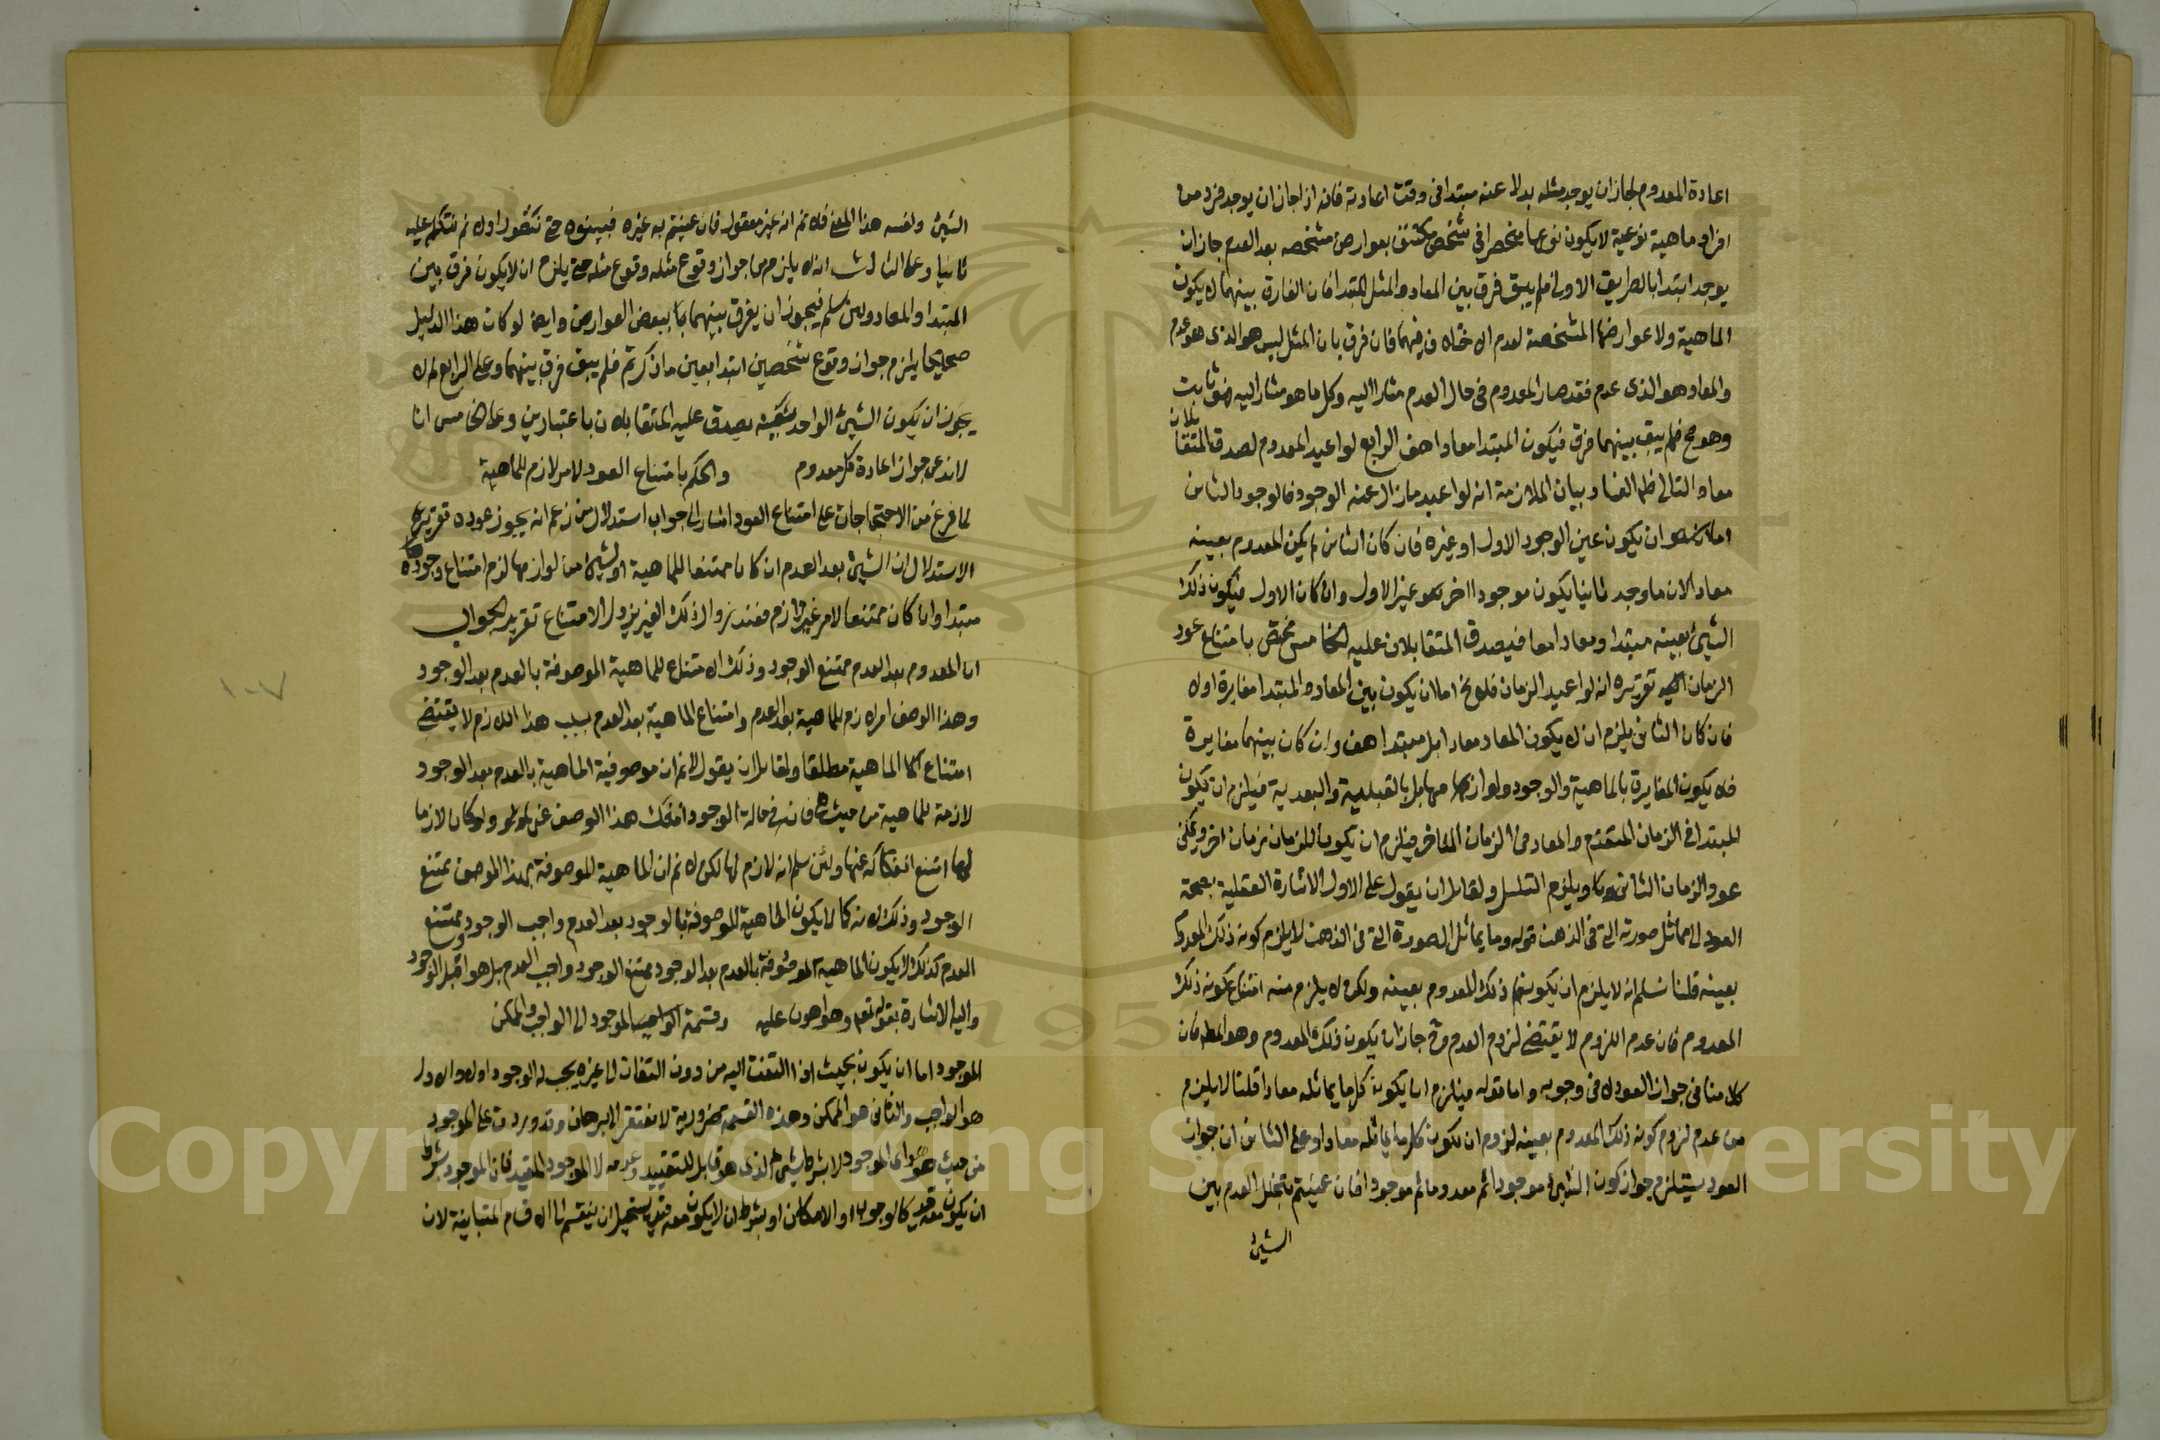 اعادة المعدوم لجاز ان يوجد مثله بدلا عنه مبتدا في وقت اعادته فانه اذا جاز ان يوجد فرد من
افراد ماهية نوعية لا يكون نوعها منحصرا في شخص مكتنف بعوارض مشخصه بعد العدم جاز ان
يوجد ابتدا بالطريق الاولى فلم يبق فرق بين المعاد والمثل المبتدا فان الفارق بينهما لا يكون
الماهية ولا عوارضها المشخصة لعدم الاختلاف فيهما فان فرق بان المثل ليس هو الذى هو عدم
والمعاد هو الذى عدم فقد صار المعدوم في حال العدم مشارا اليه وكل ما هو مشار اليه فهو ثابت
وهو مح فلم يبق بينهما فرق فيكون المبتدا معادا هف الرابع لو اعيد المعدوم لصدق المتقابلان
معا والتالى ظاهر الفساد وبيان الملازمة انه لو اعيد ما زال عنه الوجود فالوجود الثانى
اما ان يكون عين الوجود الاول او غيره فان كان الثانى لم يكن المعدوم بعينه
معادا لان ما وجد ثانيا يكون موجودا اخر هو غير الاول وان كان الاول فيكون ذلك
الشيء بعينه مبتدا ومعادا معا فيصدق المتقابلان عليه الخامس مختص بامتناع عود
الزمان تقريره انه لو اعيد الزمان فلا يخ اما ان يكون بين المعاد والمبتدا مغايرة اولا
فان كان الثانى يلزم ان لا يكون المعاد معادا بل مبتدا هف وان كان بينهما مغايرة
فلا يكون المغايرة بالماهية والوجود ولوازمهما بل بالقبلية والبعدية فيلزم ان يكون
المبتدا في الزمان المتقدم والمعاد في الزمان المتاخر فيلزم ان يكون للزمان زمان اخر ويمكن
عود الزمان الثانى ويلزم التسلسل ولقائل ان يقول على الاول الاشارة العقلية بصحة
العود الى مماثل صورته التى في الذهن قوله وما يماثل الصورة التى في الذهن لا يلزم كونه ذلك المعدوم
بعينه قلنا نسلم انه لا يلزم ان يكون ذلك المعدوم بعينه ولكن لا يلزم منه امتناع كونه ذلك
المعدوم فان عدم اللزوم لا يقتضى لزوم العدم وح جاز ان يكون ذلك المعدوم وهو المط فان
كلامنا في جواز العود لا في وجوبه واما قوله فيلزم ان يكون كل ما يماثله معادا قلنا لا يلزم
من عدم لزوم كونه ذلك المعدوم بعينه لزوم ان يكون كل ما يماثله معادا وعلى الثانى ان جواز
العود يستلزم جواز كون الشيء موجودا ثم معدوما ثم موجودا فان عنيتم بتخلل العدم بين
الشيء
الشيء ونفسه هذا المعنى فلا نم انه غير معقول فان عنيتم به غيره فبينوه حتى نتصور اولا ثم نتكلم عليه
ثانيا وعلى الثالث انه لا يلزم من جواز وقوع مثله وقوع مثله حتى يلزم ان لا يكون فرق بين
المبتدا والمعاد ولئن سلم فيجوز ان يفرق بينهما ببعض العوارض وايضا لو كان هذا الدليل
صحيحا يلزم جواز وقوع شخصين ابتدا بعين ما ذكرتم فلم يبق فرق بينهما وعلى الرابع انه لا
يجوز ان يكون الشيء الواحد بعينه يصدق عليه المتقابلان باعتبارين وعلى الخامس انا
لا ندعى جواز اعادة كل معدوم والحكم بامتناع العود لامر لازم للماهية
لما فرغ من الاحتجاجات على امتناع العود اشار الى جواب استدلال من زعم انه يجوز عوده تقرير
الاستدلال ان الشيء بعد العدم ان كان ممتنعا للماهية او لشيء من لوازمها لزم امتناع وجوده
مبتدا وان كان ممتنعا لامر غير لازم فعند زوال ذلك الغير يزول الامتناع تقرير الجواب
ان المعدوم بعد العدم ممتنع الوجود وذلك الامتناع للماهية الموصوفة بالعدم بعد الوجود
وهذا الوصف امر لازم للماهية بعد العدم وامتناع الماهية بعد العدم بسبب هذا اللازم لا يقتضى
امتناع الماهية مطلقا ولقائل ان يقول لا نم ان موصوفية الماهية بالعدم بعد الوجود
لازمة للماهية من حيث هى فان في حالة الوجود انفك هذا الوصف عن ولو كان لازما
لها امتنع انفكاكه عنها ولئن سلم انه لازم لها لكن لا نم ان الماهية الموصوفة بهذا الوصف ممتنع
الوجود وذلك لانه كما لا يكون الماهية الموصوفة بالوجود بعد العدم واجب الوجود وممتنع
العدم كذلك لا يكون الماهية الموصوفة بالعدم بعد الوجود ممتنع الوجود وواجب العدم بل هو اقبل للوجود
واليه الاشارة بقوله تع وهو اهون عليه وقسمة الموجود الى الواجب والممكن
الموجود اما ان يكون بحيث اذا التفت اليه من دون التفات الى غيره يجب له الوجود اولا والاول
هو الواجب والثانى هو الممكن وهذه القسمة ضرورية لا تفتقر الى برهان وقد وردت على الموجود
من حيث هو اى الموجود لا بشرط شيء الذى هو قابل للتقييد وعدمه لا الموجود المقيد فان الموجود بشرط
ان يكون معه قيد كالوجوب او الامكان او بشرط ان لا يكون معه قيد يستحيل ان ينقسم الى الاقسام المتباينة لان
١٠٧
Copyright © King Saud University
195